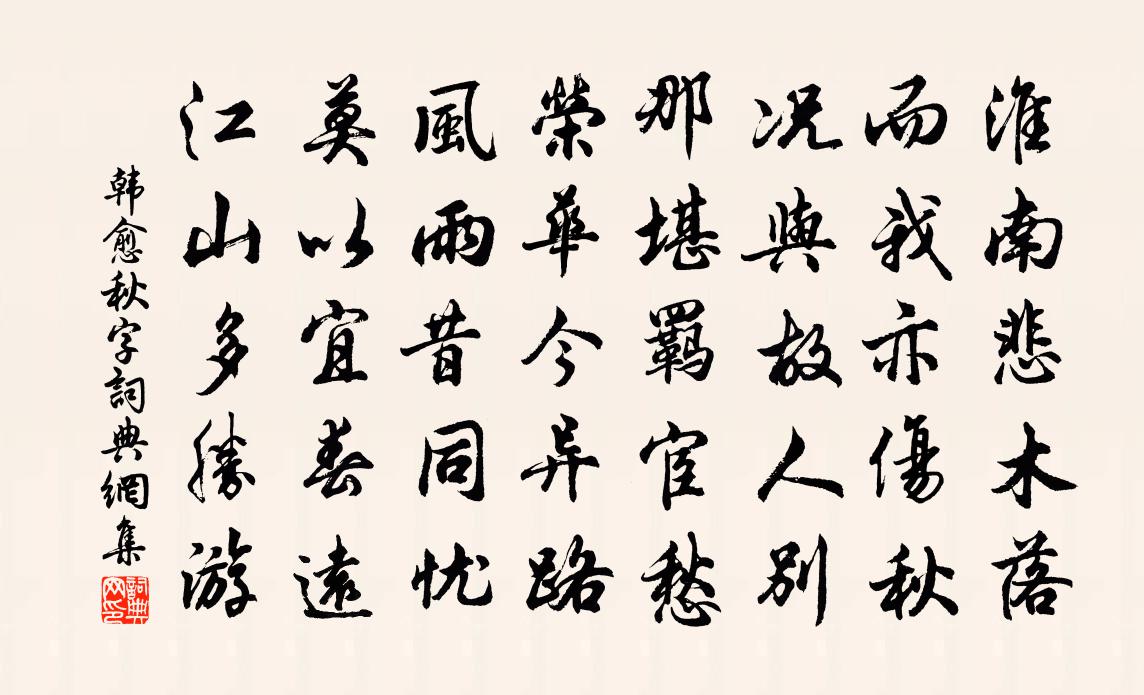 淮南悲木落
而我亦傷秋
况與故人別
那堪羈宦愁
榮華今异路
風雨昔同忧
莫以宜春遠
江山多勝游
韩愈秋字詞典網集
詞典网印